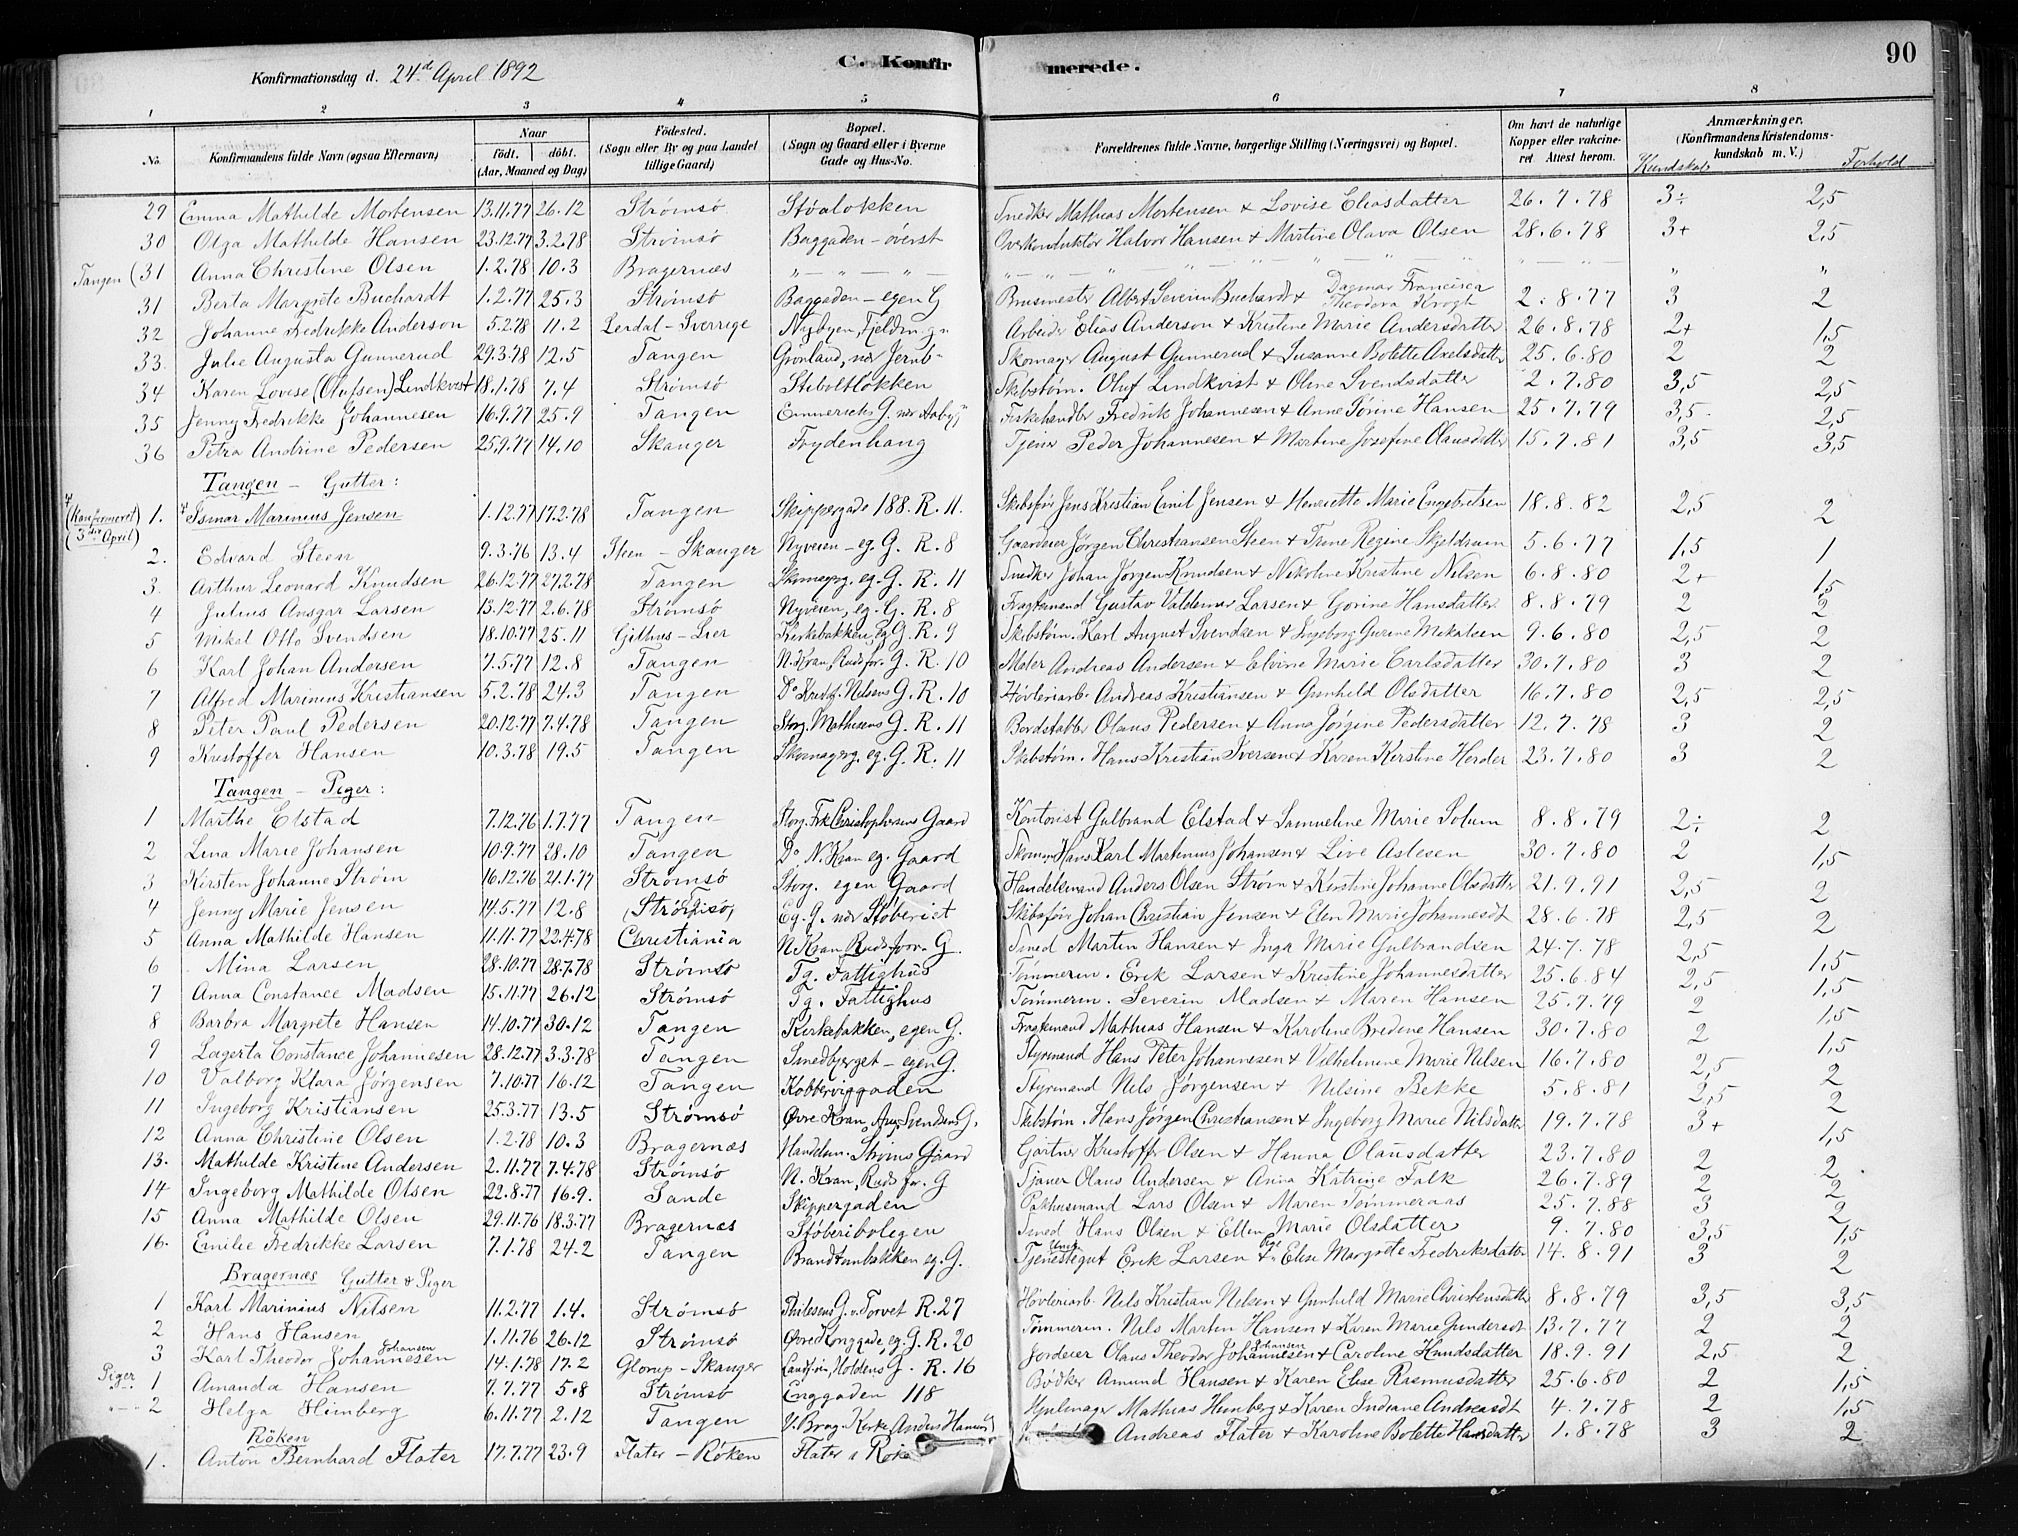 90
Konfirmationsdag d. 24d April 1892
C. Konfirmerede.
1 2 3 4 5 6 7 8
No. Konfirmandens fulde Navn (ogsaa Efternavn) Naar født. døbt. (Aar, Maaned og Dag) Fødested. (Sogn eller By og paa Landet tillige Gaard) Bopæl. (Sogn og Gaard eller i Byerne Gade og Hus-No. Forældrenes fulde Navne, borgerlige Stilling (Næringsvei) og Bopæl. Om havt de naturlige Kopper eller vakcineret Attest herom. Anmærkninger. (Konfirmandens Kristendomskundskab m. V.) Kundskab Forhold
29 Emma Mathilde Mortensen 13.11.77 26.12 Strømsø Støalokken Snedker Mathias Mortensen & Lovise Eliasdatter 26.7.78 3÷ 2,5
30 Olga Mathilde Hansen 23.12.77 3.2.78 Strømsø Baggaden - øverst Overkonduktør Halvor Hansen & Martine Olava Olsen 28.6.78 3+ 2,5
Tangen (31 Anna Christine Olsen 1.2.78 10.3 Bragernæs " — " — " — " " "
31 Berta Margrete Buchardt 1.2.77 25.3 Strømsø Baggaden - egen G Brusmester Albert Severin Buchardt & Dagmar Francisca Theodora Krogh 2.8.77 3 2
32 Johanne Fredrikke Anderson 5.2.78 11.2 Lerdal - Sverrige Nybyen, Fjeldm. gn Arbeider Elias Anderson & Kristine Marie Andersdatter 26.8.78 2+ 1,5
33. Julie Augusta Gunnerud 29.3.78 12.5 Tangen Grønland, nær Jernb- Skomager August Gunnerud & Susanne Bolette Axelsdatter 25.6.80 2 2
34 Karen Lovise (Olufsen) Lindkvist 18.1.78 7.4 Strømsø Stiboltløkken Skibstøm. Oluf Lindkvist & Oline Svendsdatter 2.7.80 3,5 2,5
35 Jenny Fredrikke Johannesen 16.9.77 25.9 Tangen Emmerichs G. nær Aaby Fiskehandler Fredrik Johannesen & Anne Sørine Hansen 25.7.79 3,5 2,5
36 Petra Andrine Pedersen 25.9.77 14.10 Skanger Frydenhaug Tjener Peder Johannesen & Martine Josefine Olausdatter 15.7.81 3,5 3,5
Tangen - Gutter:
(Konfirmeret 3die April) 1. Ismar Marinius Jensen 1.12.77 17.2.78 Tangen Skippergade 188. R. 11. Skibsfør. Jens Kristian Emil Jensen & Henriette Marie Engebretsen 18.8.82 2,5 2
2. Edvard Steen 9.3.76 13.4 Steen - Skanger Nyveien - eg. G. R. 8 Gaardeier Jørgen Christiansen Steen & Trine Regine Skjeldrum 5.6.77 1,5 1
3. Arthur Leonard Knudsen 26.12.77 27.2.78 Tangen Skomagrg. eg. G. R. 11 Snedker Johan Jørgen Knudsen & Nikoline Kristine Nilsen 6.8.80 2+ 1,5
4 Julius Ansgar Larsen 13.12.77 2.6.78 Strømsø Nyveien, eg. G. R. 8 Fragtemand Gustav Valdemar Larsen & Gorine Hansdatter 8.8.79 2 2
5 Mikal Otto Svendsen 18.10.77 25.11 Gilhus - Lier Kirkebakken, eg G. R. 9 Skibstøm. Karl August Svendsen & Ingeborg Gurine Mikalsen 9.6.80 2,5 2
6 Karl Johan Andersen 7.5.77 12.8 Tangen N. Kran, Rudsfor. G. R. 10 Maler Andreas Andersen & Elvine Marie Carlsdatter 30.7.80 3 2
7 Alfred Marinius Kristiansen 5.2.78 24.3 Tangen Do Kristof. Nelsens G. R. 10 Høvleriarb. Andreas Kristiansen & Gunhild Olsdatter 16.7.80 2,5 2,5
8 Peter Paul Pedersen 20.12.77 7.4.78 Tangen Storg. Mathisens G. R. 11 Bordstabler Olaus Pedersen & Anna Jørgine Pedersdatter 12.7.78 3 2
9 Kristoffer Hansen 10.3.78 19.5 Tangen Skomagrg. eg. G. R. 11 Skibstøm. Hans Kristian Iversen & Karen Kirstine Horder 23.7.80 3 2
Tangen - Piger:
1 Marthe Elstad 7.12.76 1.7.77 Tangen Storg. Frk Christophersens Gaard Kontorist Gulbrand Elstad & Samueline Marie Solum 8.8.79 2÷ 2
2 Lina Marie Johansen 10.9.77 28.10 Tangen Do N. Kran eg. Gaard Skomm. Hans Karl Martinius Johansen & Live Aslesen 30.7.80 2 1,5
3 Kirsten Johanne Strøm 16.12.76 21.1.77 Strømsø Storg. egen Gaard Handelsmand Anders Olsen Strøm & Kirstine Johanne Olsdatter 21.9.91 2,5 2
4 Jenny Marie Jensen 14.5.77 12.8 (Strømsø) Eg. G. nær Støberiet Skibsfør. Johan Christian Jensen & Elen Marie Johannesdt 28.6.78 2,5 2
5 Anna Mathilde Hansen 11.11.77 22.4.78 Christiania N. Kran Rudsfor. G. Smed Martin Hansen & Inga Marie Gulbrandsen 24.7.78 2,5 1,5
6 Mina Larsen 28.10.77 28.7.78 Strømsø Tg. Fattighus Tømmerm. Erik Larsen & Kristine Johannesdatter 25.6.84 2,5 1,5
7 Anna Constance Madsen 15.11.77 26.12 Strømsø Tg. Fattighus Tømmerm. Severin Madsen & Maren Hansen 25.7.79 2 1,5
8 Barbra Margrete Hansen 14.10.77 30.12 Tangen Kirkebakken, egen G. Fragtemand Mathias Hansen & Karoline Bredine Hansen 30.7.80 2 1,5
9 Lagerta Constance Johannesen 28.12.77 3.3.78 Tangen Smedbjerget - egen G. Styrmand Hans Peter Johannesen & Vilhelmine Marie Nilsen 16.7.80 2,5 2
10 Valborg Klara Jørgensen 7.10.77 16.12 Tangen Kobberviggaden Styrmand Nels Jørgensen & Nelsine Bekke 5.8.81 2,5 2
11 Ingeborg Kristiansen 25.3.77 13.5 Strømsø Øvre Kran, Aug. Svendsens G. Skibstøm. Hans Jørgen Christiansen & Ingeborg Marie Nilsdatter 19.7.78 3+ 1,5
12 Anna Christine Olsen 1.2.78 10.3 Bragernæs Handelsm. Strøms Gaard Gartner Kristoffer Olsen & Hanna Olausdatter 23.7.80 2 2
13. Mathilde Kristine Andersen 2.11.77 7.4.78 Strømsø N. Kran, Rudsfor. G Tjener Olaus Andersen & Anna Katrine Falk 26.7.89 2 2
14 Ingeborg Mathilde Olsen 22.8.77 16.9. Sande Skippergaden Pakhusmand Lars Olsen & Maren Tømmeraas 25.7.88 3 2
15 Anna Mathilde Olsen 29.11.76 18.3.77 Bragernæs Støberiboligen Smed Hans Olsen & Ellen Marie Olsdatter 9.7.80 3,5 1,5
16. Emilie Fredrikke Larsen 7.1.78 24.2 Tangen Brandtenbakken eg. G. Tjenestegut Erik Larsen & Pige Elise Margrete Fredriksdatter 14.8.91 3 2
Bragernæs Gutter & Piger
1 Karl Marinius Nilsen 11.2.77 1.4. Strømsø Thilesens G. v. Torvet R. 27 Høvleriarb. Nels Kristian Nelsen & Gunhild Marie Christensdatter 8.8.79 3,5 3,5
2 Hans Hansen 1.11.76 26.12 Strømsø Øvre Enggade, eg. G. R. 20 Tømmerm. Nils Martin Hansen & Karen Marie Gundersdt 13.7.77 2 2
3 Karl Theodor Johannesen Johansen 14.1.78 17.2 Glorup - Skanger Landfn. Holdens G. R. 16 Jordeier Olaus Theodor Johannesen Johansen & Caroline Hansdatter 18.9.91 2,5 2
Piger 1 Amanda Hansen 7.7.77 5.8 Strømsø Enggaden 118 Bødker Amund Hansen & Karen Elise Rasmusdatter 25.6.80 2 1,5
" 2 Helga Himberg 6.11.77 2.12 Tangen V. Brag. Kirke, Anders Hansens Hjulmager Mathias Himberg & Karen Indiane Andreasdt 4.7.78 2 1,5
Röken
1. Anton Bernhard Flater 17.7.77 23.9 Flater - Røken Flater i Røk Andreas Flater & Karoline Bolette Hansdatter 1.8.78 3 2